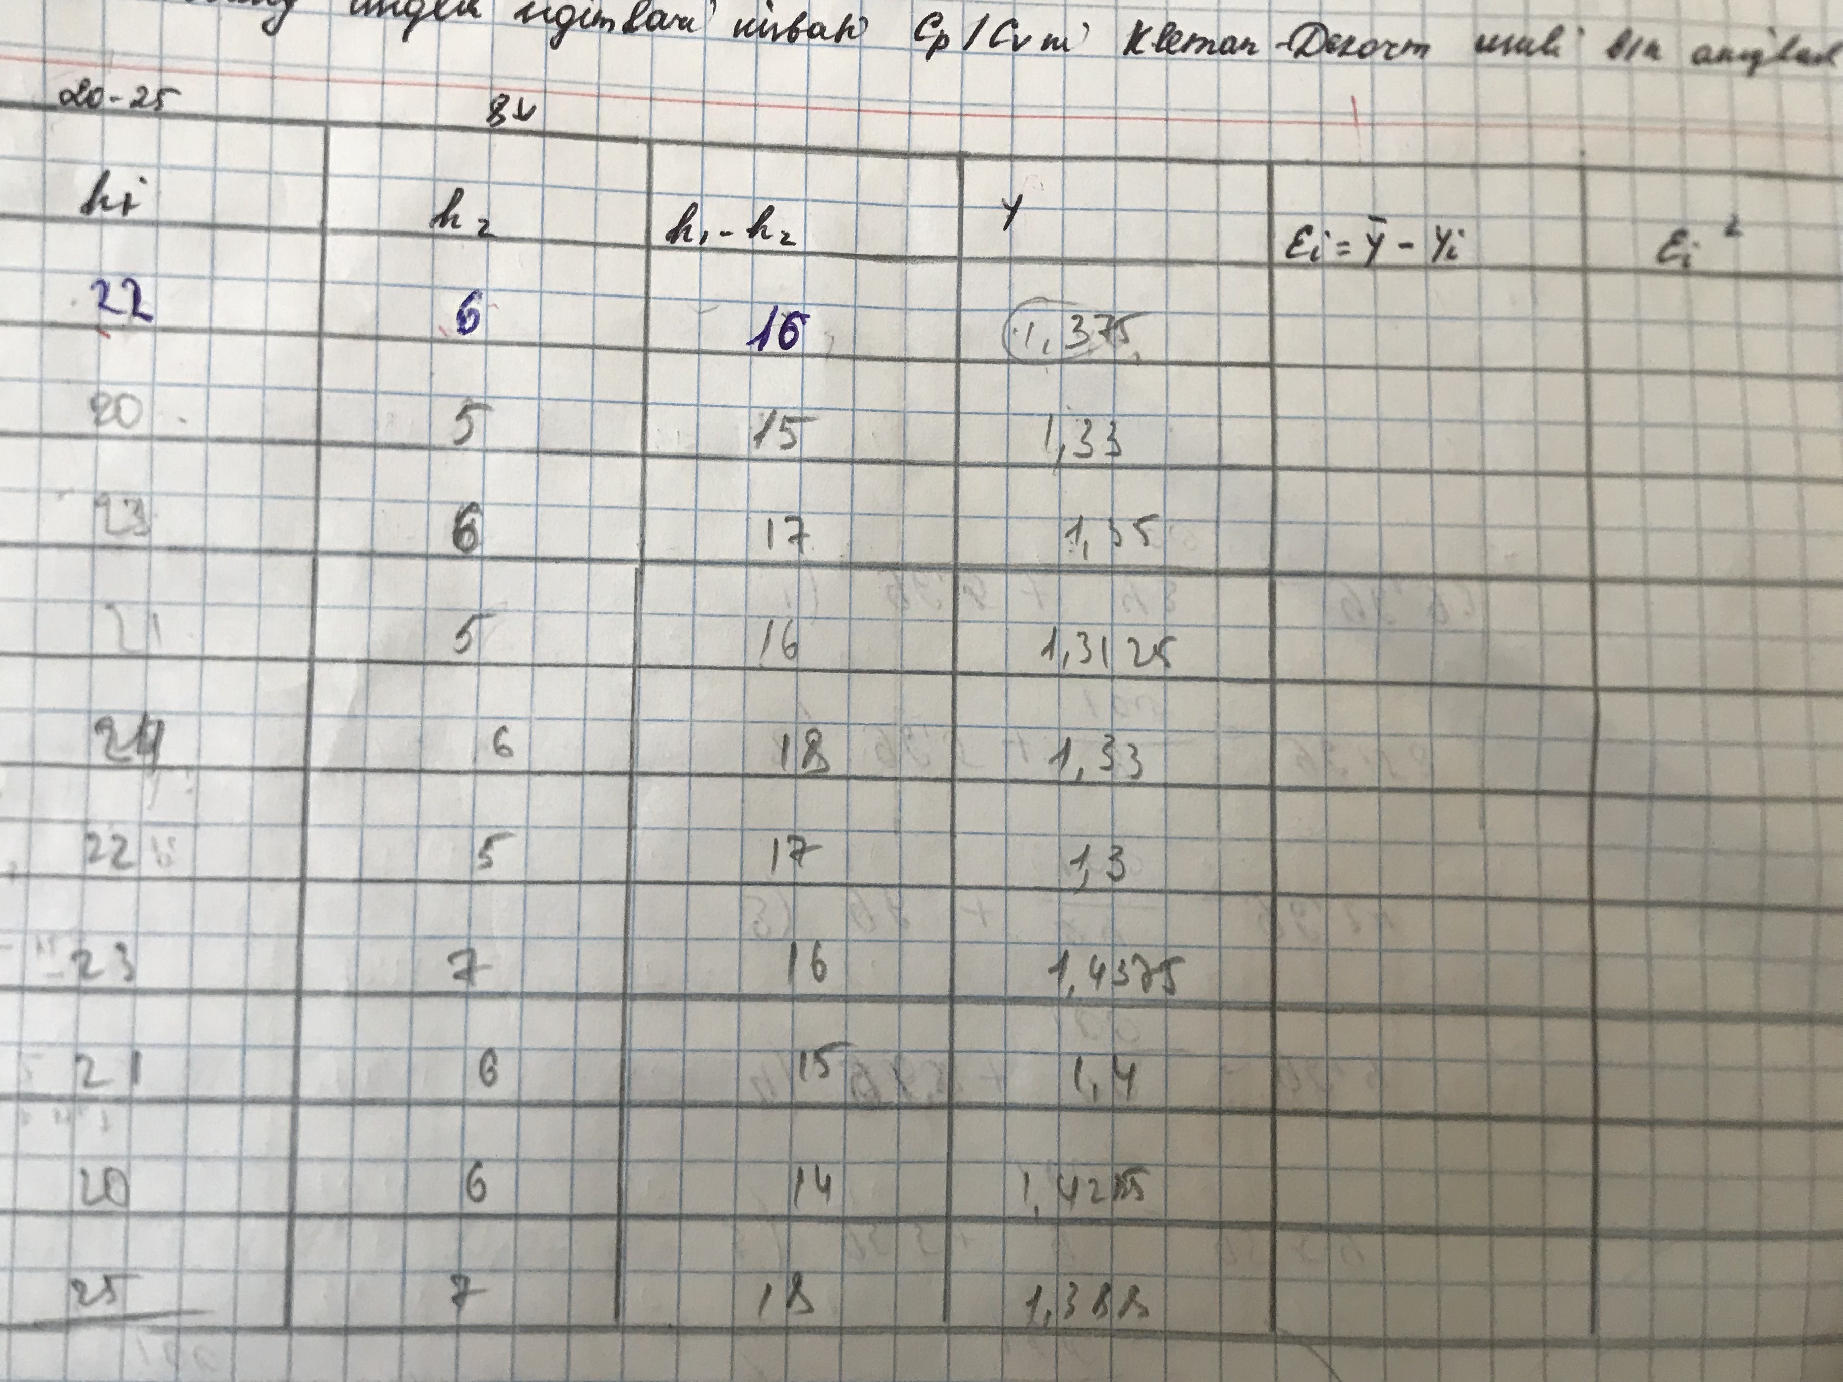 nisbati Cp/Cv ni Kleman-Dezorm usuli b-n aniqlash
20-25
h1 h2 h1-h2 γ Ɛi = γ̄ - γi Ɛi²
22 6 16 1,375
20 5 15 1,33
23 6 17 1,35
21 5 16 1,3125
24 6 18 1,33
22 5 17 1,3
23 7 16 1,4375
21 6 15 1,4
20 6 14
25 7 18 1,388